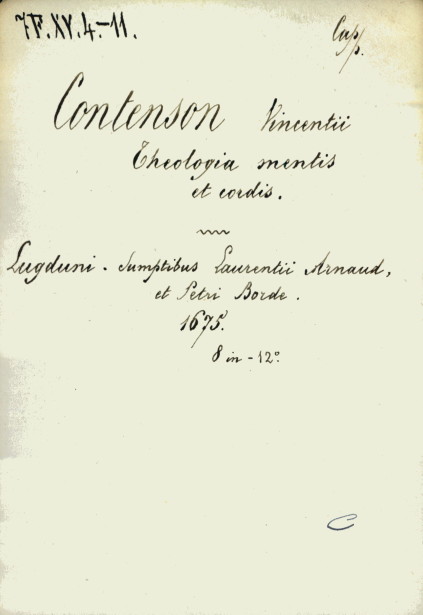 7F.XV.4.-11.
Capp.
Contenson Vincentii
Theologia mentis
et cordis.
Lugduni. Sumptibus Laurentii Arnaud,
et Petri Borde.
1675.
8 in - 12º
C